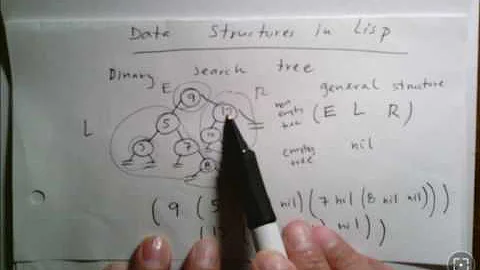 Data Structures in Lisp
Binary search tree
general structure
E
R
L
9
5
3
7
8
non empty tree
( E L R )
empty tree
nil
( 9 ( 5 nil ) ( 7 nil ( 8 nil nil ) ) )
nil ) )